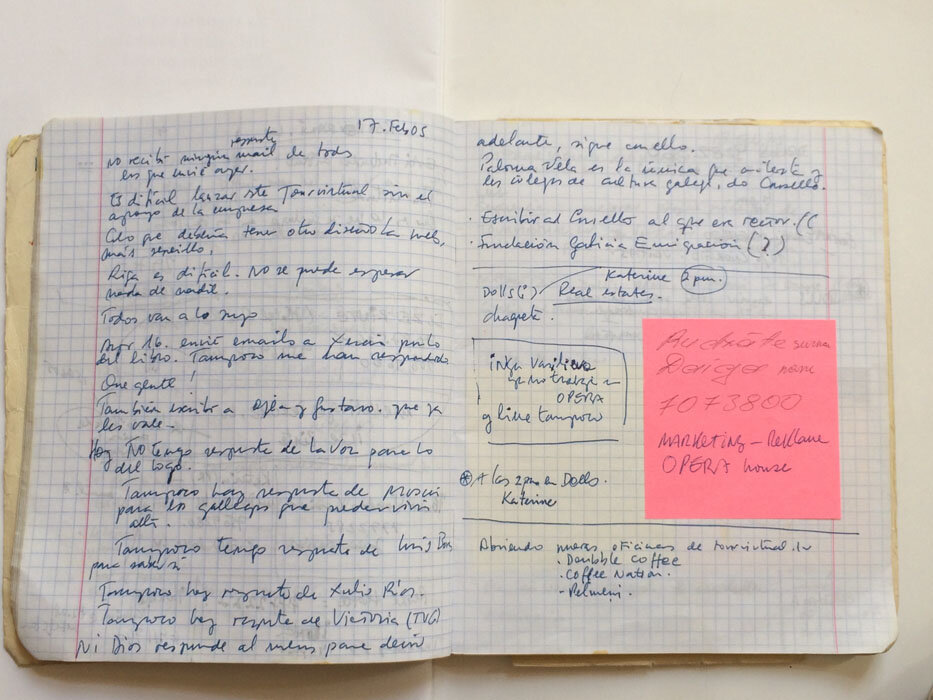 17. Feb 05
respuesta
no recibí ningún mail de todos
los que envié ayer.
Es difícil lanzar este Tourvirtual sin el
apoyo de la empresa
Creo que debería tener otro diseño la web,
más sencillo.
Riga es difícil. No se puede esperar
nada de nadie.
Todos van a lo suyo
16. envié emails a Xerais
del libro. Tampoco me han respondido
Que gente!
También escribí a Olga y Gustavo. que ya
les vale.
Hoy No tengo respuesta de La Voz para lo
del logo.
Tampoco hay respuesta de Moscú
para los gallegos que puedan vivir
allí.
Tampoco tengo respuesta de Luis
para
Tampoco hay respuesta de Xulio Ríos.
Tampoco hay respuesta de Victoria (TVG)
Ni Dios responde al menos para decir
adelante, sigue con ello.
Paloma Vela es la única que contesta y
los colegas de cultura galega, do Consello.
· Escribir al Consello al que era rector. ((
· Fundación Galicia Emigración (?)
Katerine 2 pm.
Dolls (i) Real estates.
chaqueta.
inga Vasilieva
ya no trabaja en
OPERA
y line tampoco
* A las 2 pm en Dolls.
Katerine
Abriendo nuevas oficinas de tourvirtual.lv
· Doubble Coffee
· Coffee Nation.
- Pelmeni.
7073800
MARKETING – Reklame
OPERA house